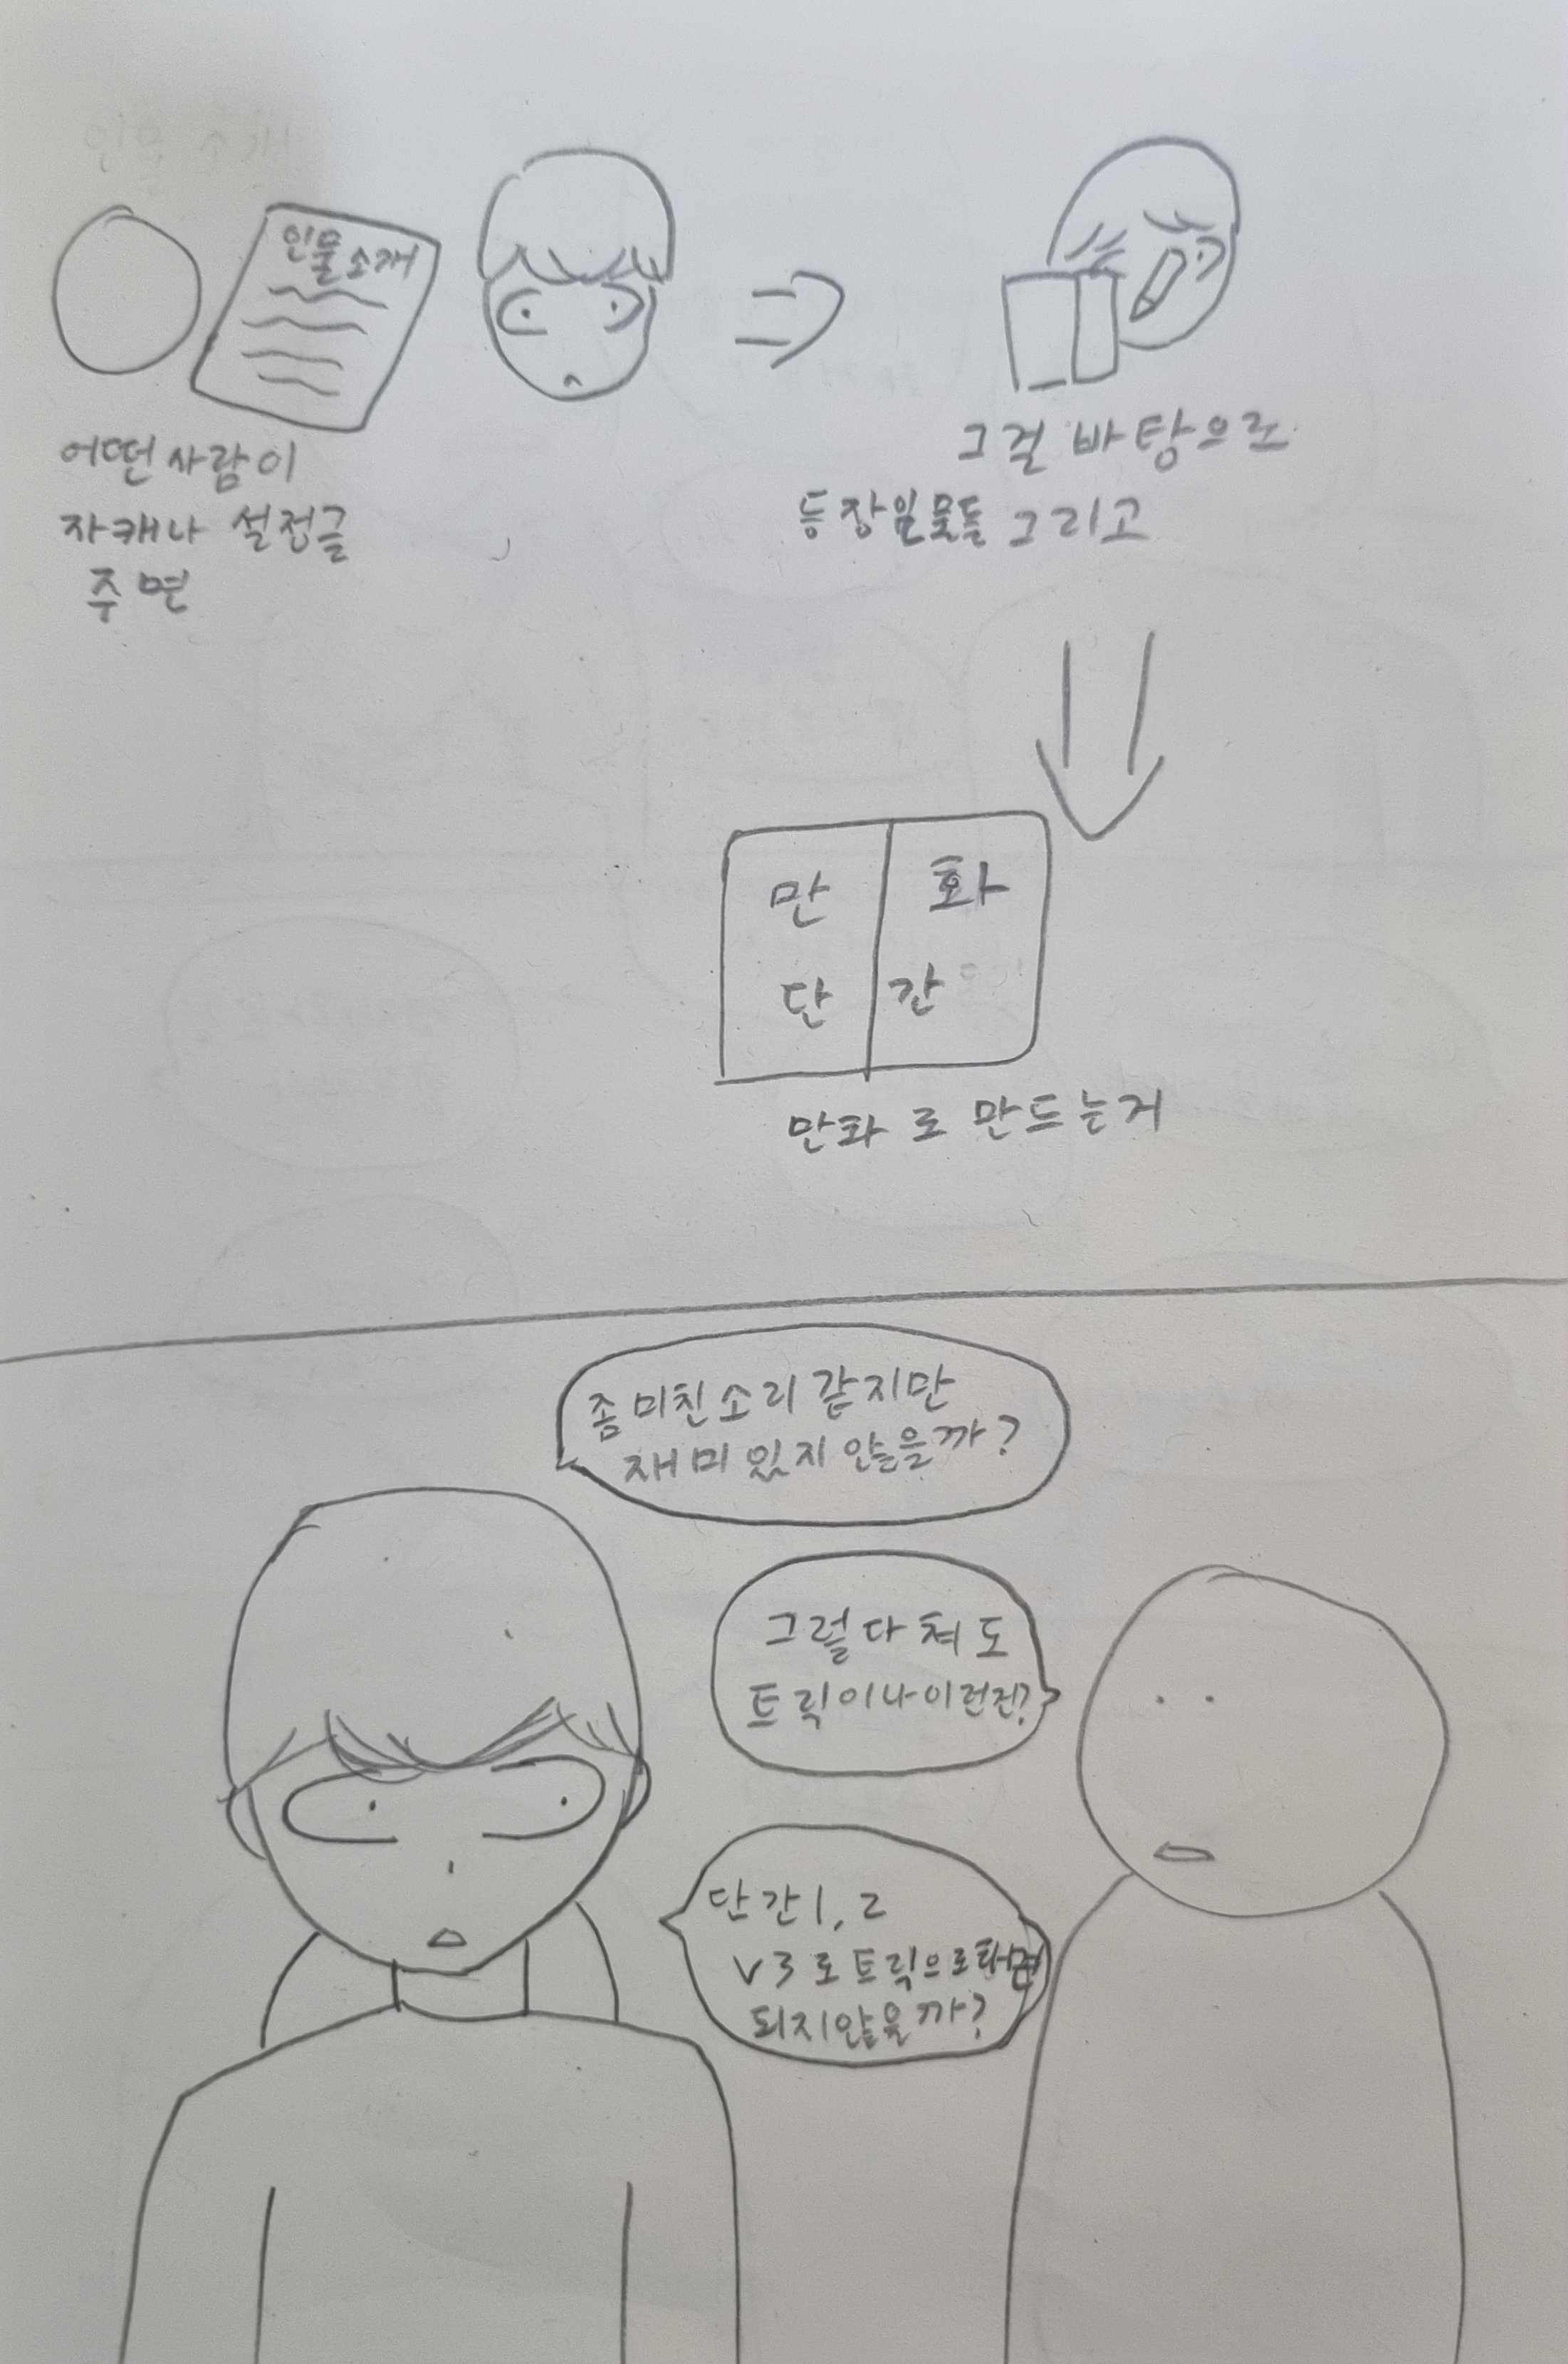 인물소개
어떤 사람이
자캐나 설정글
주면
그걸 바탕으로
등장인물들 그리고
만 화
단 간
만화로 만드는거
좀 미친소리 같지만
재미있지 않을까?
그렇다쳐도
트릭이나 이런건?
단간1, 2
V3로 트릭으로
되지않을까?